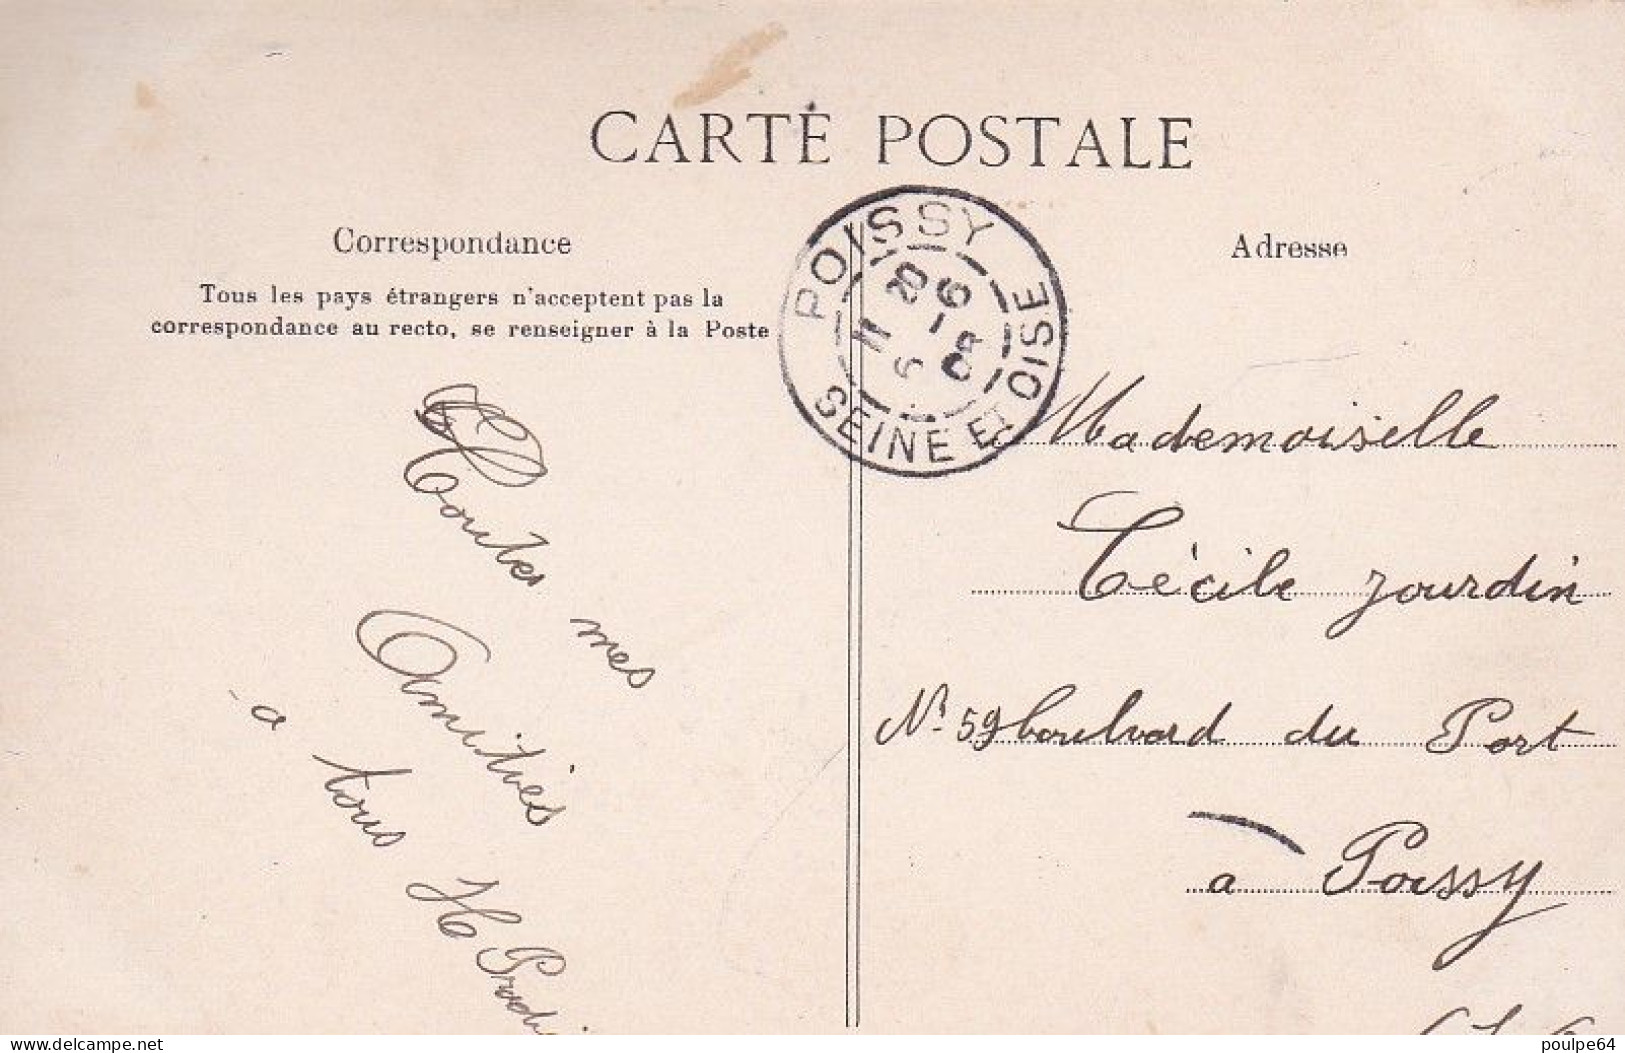 CARTE POSTALE
Correspondance
Tous les pays étrangers n'acceptent pas la
correspondance au recto, se renseigner à la Poste
Toutes mes
Amitiés
a tous
H
POISSY
20 6
11 - 6 09
SEINE ET OISE
Adresse
Mademoiselle
Cécile Jourdin
No 59 boulvard du Port
a Poissy
delcampe.net
poulpe64